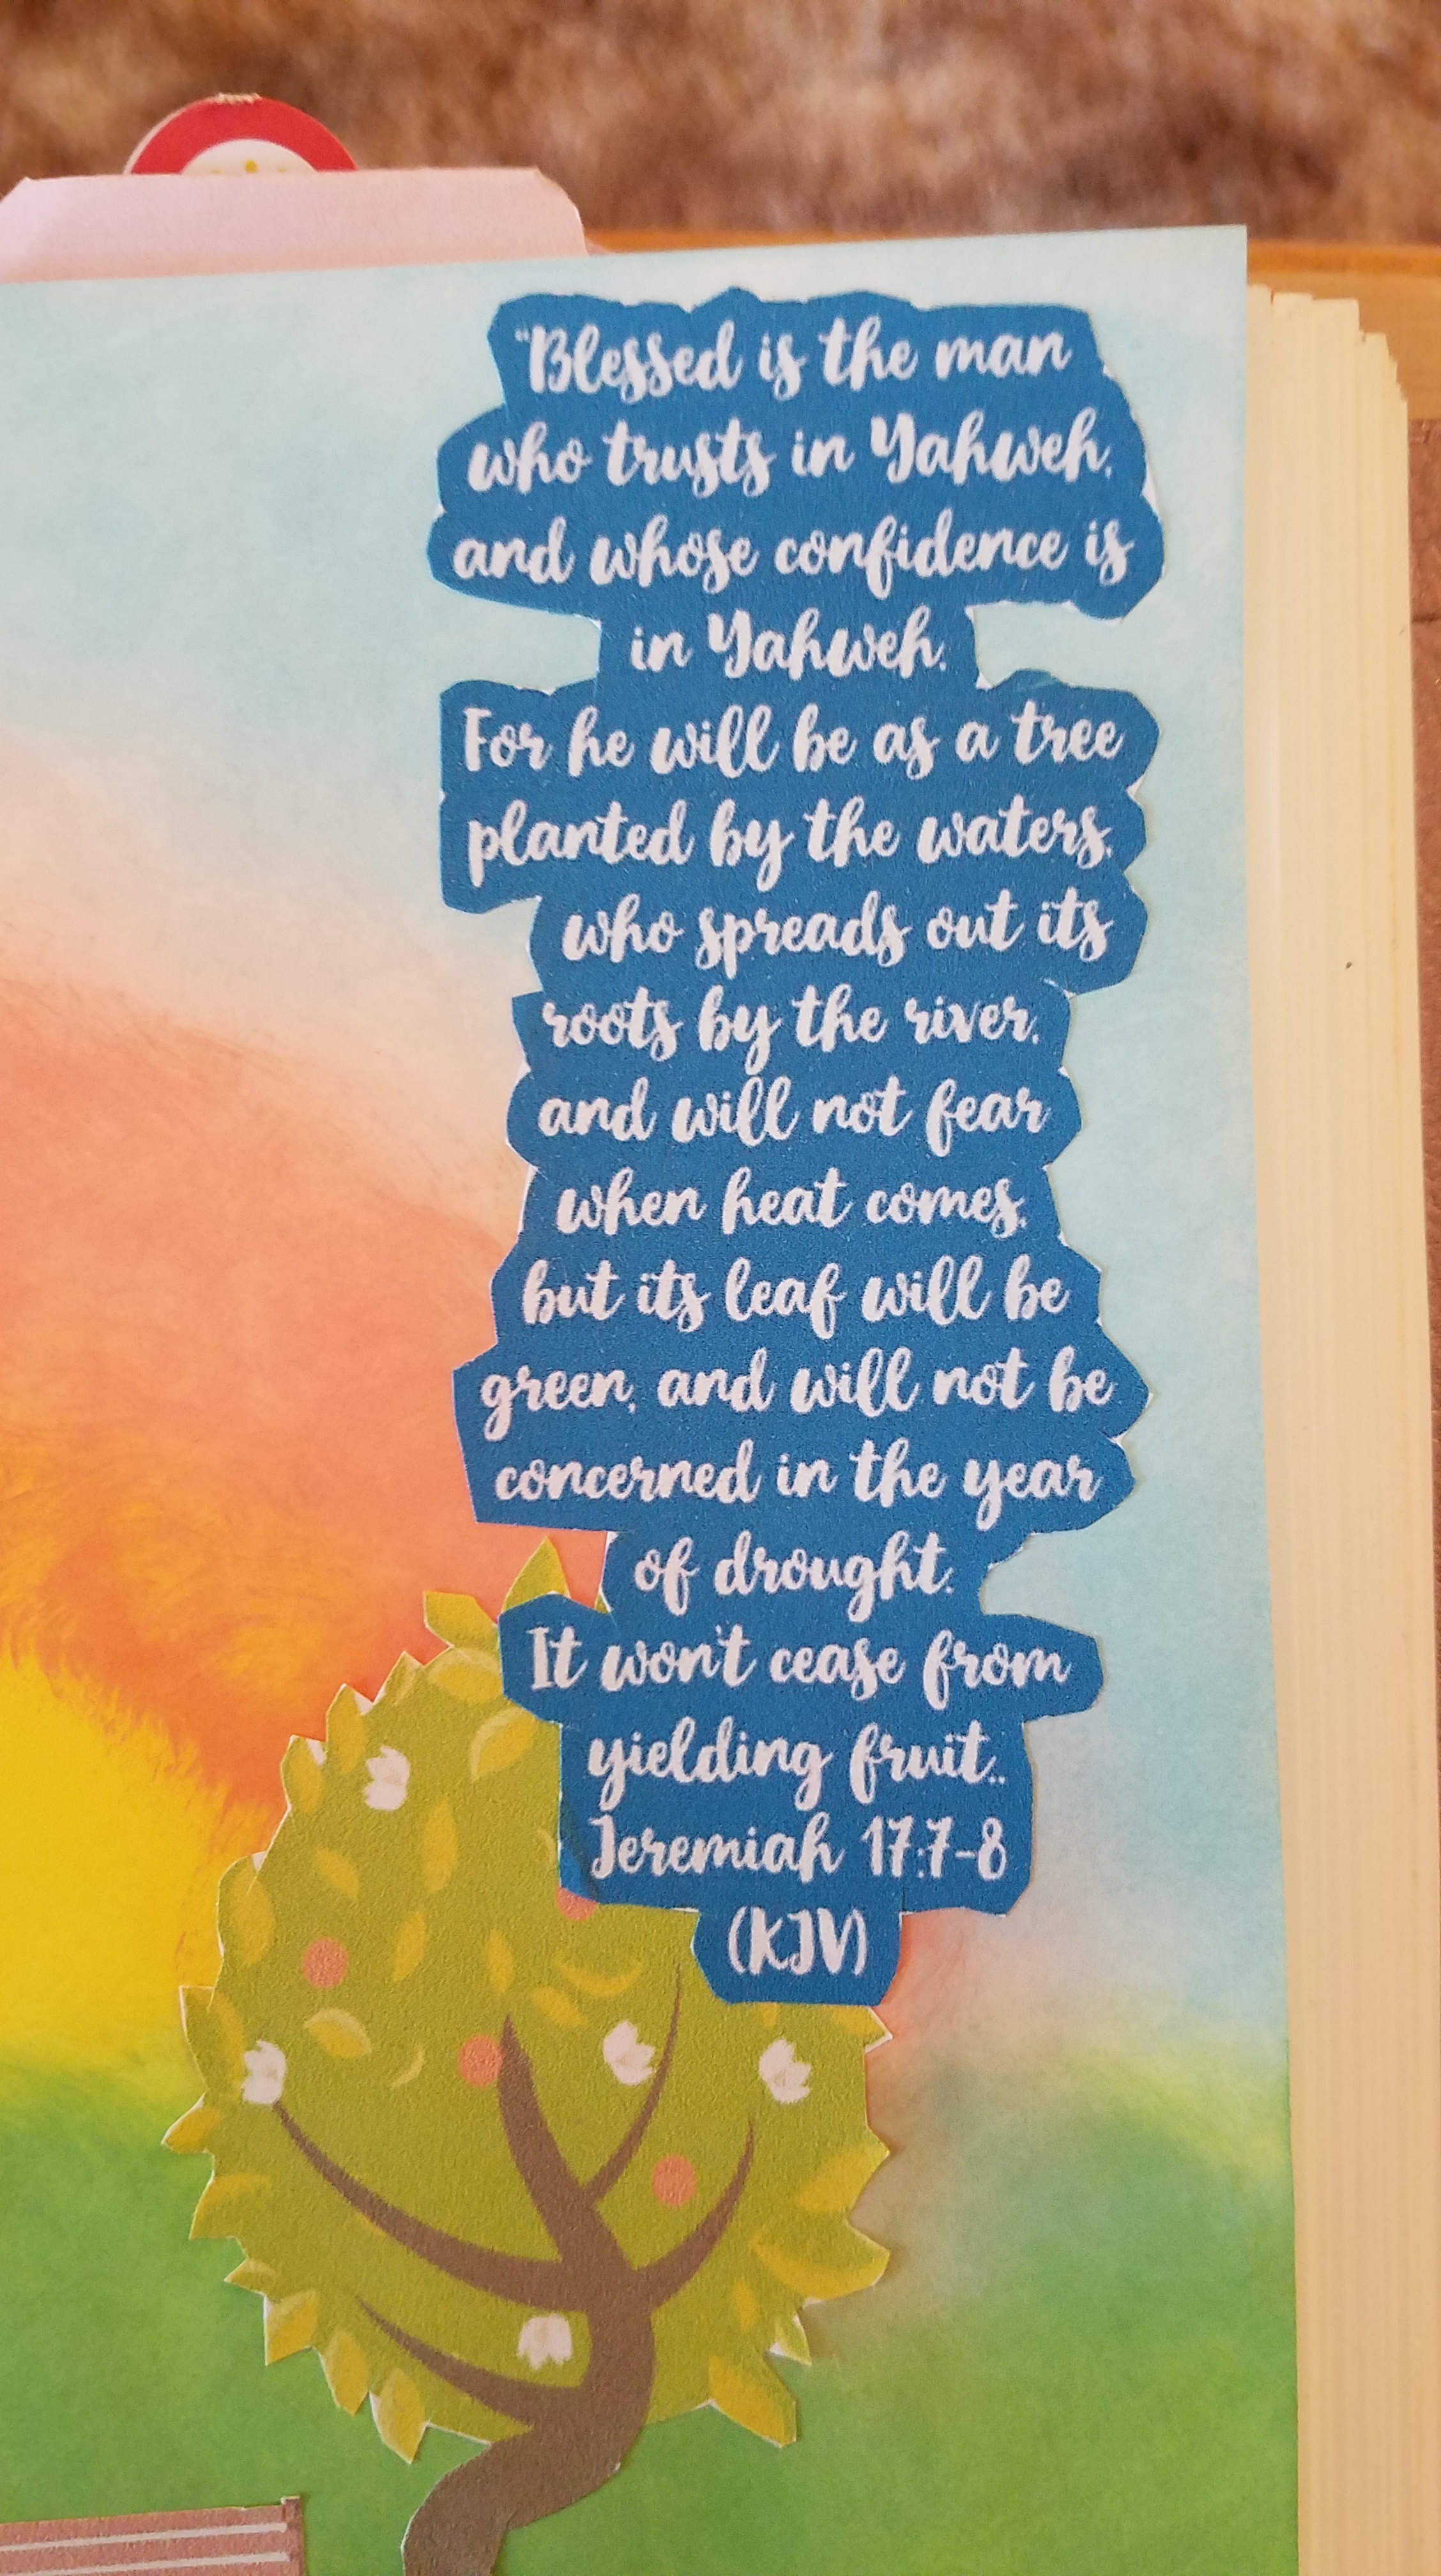 “Blessed is the man
who trusts in Yahweh,
and whose confidence is
in Yahweh.
For he will be as a tree
planted by the waters,
who spreads out its
roots by the river,
and will not fear
when heat comes,
but its leaf will be
green, and will not be
concerned in the year
of drought.
It won't cease from
yielding fruit..
Jeremiah 17:7-8
(KJV)